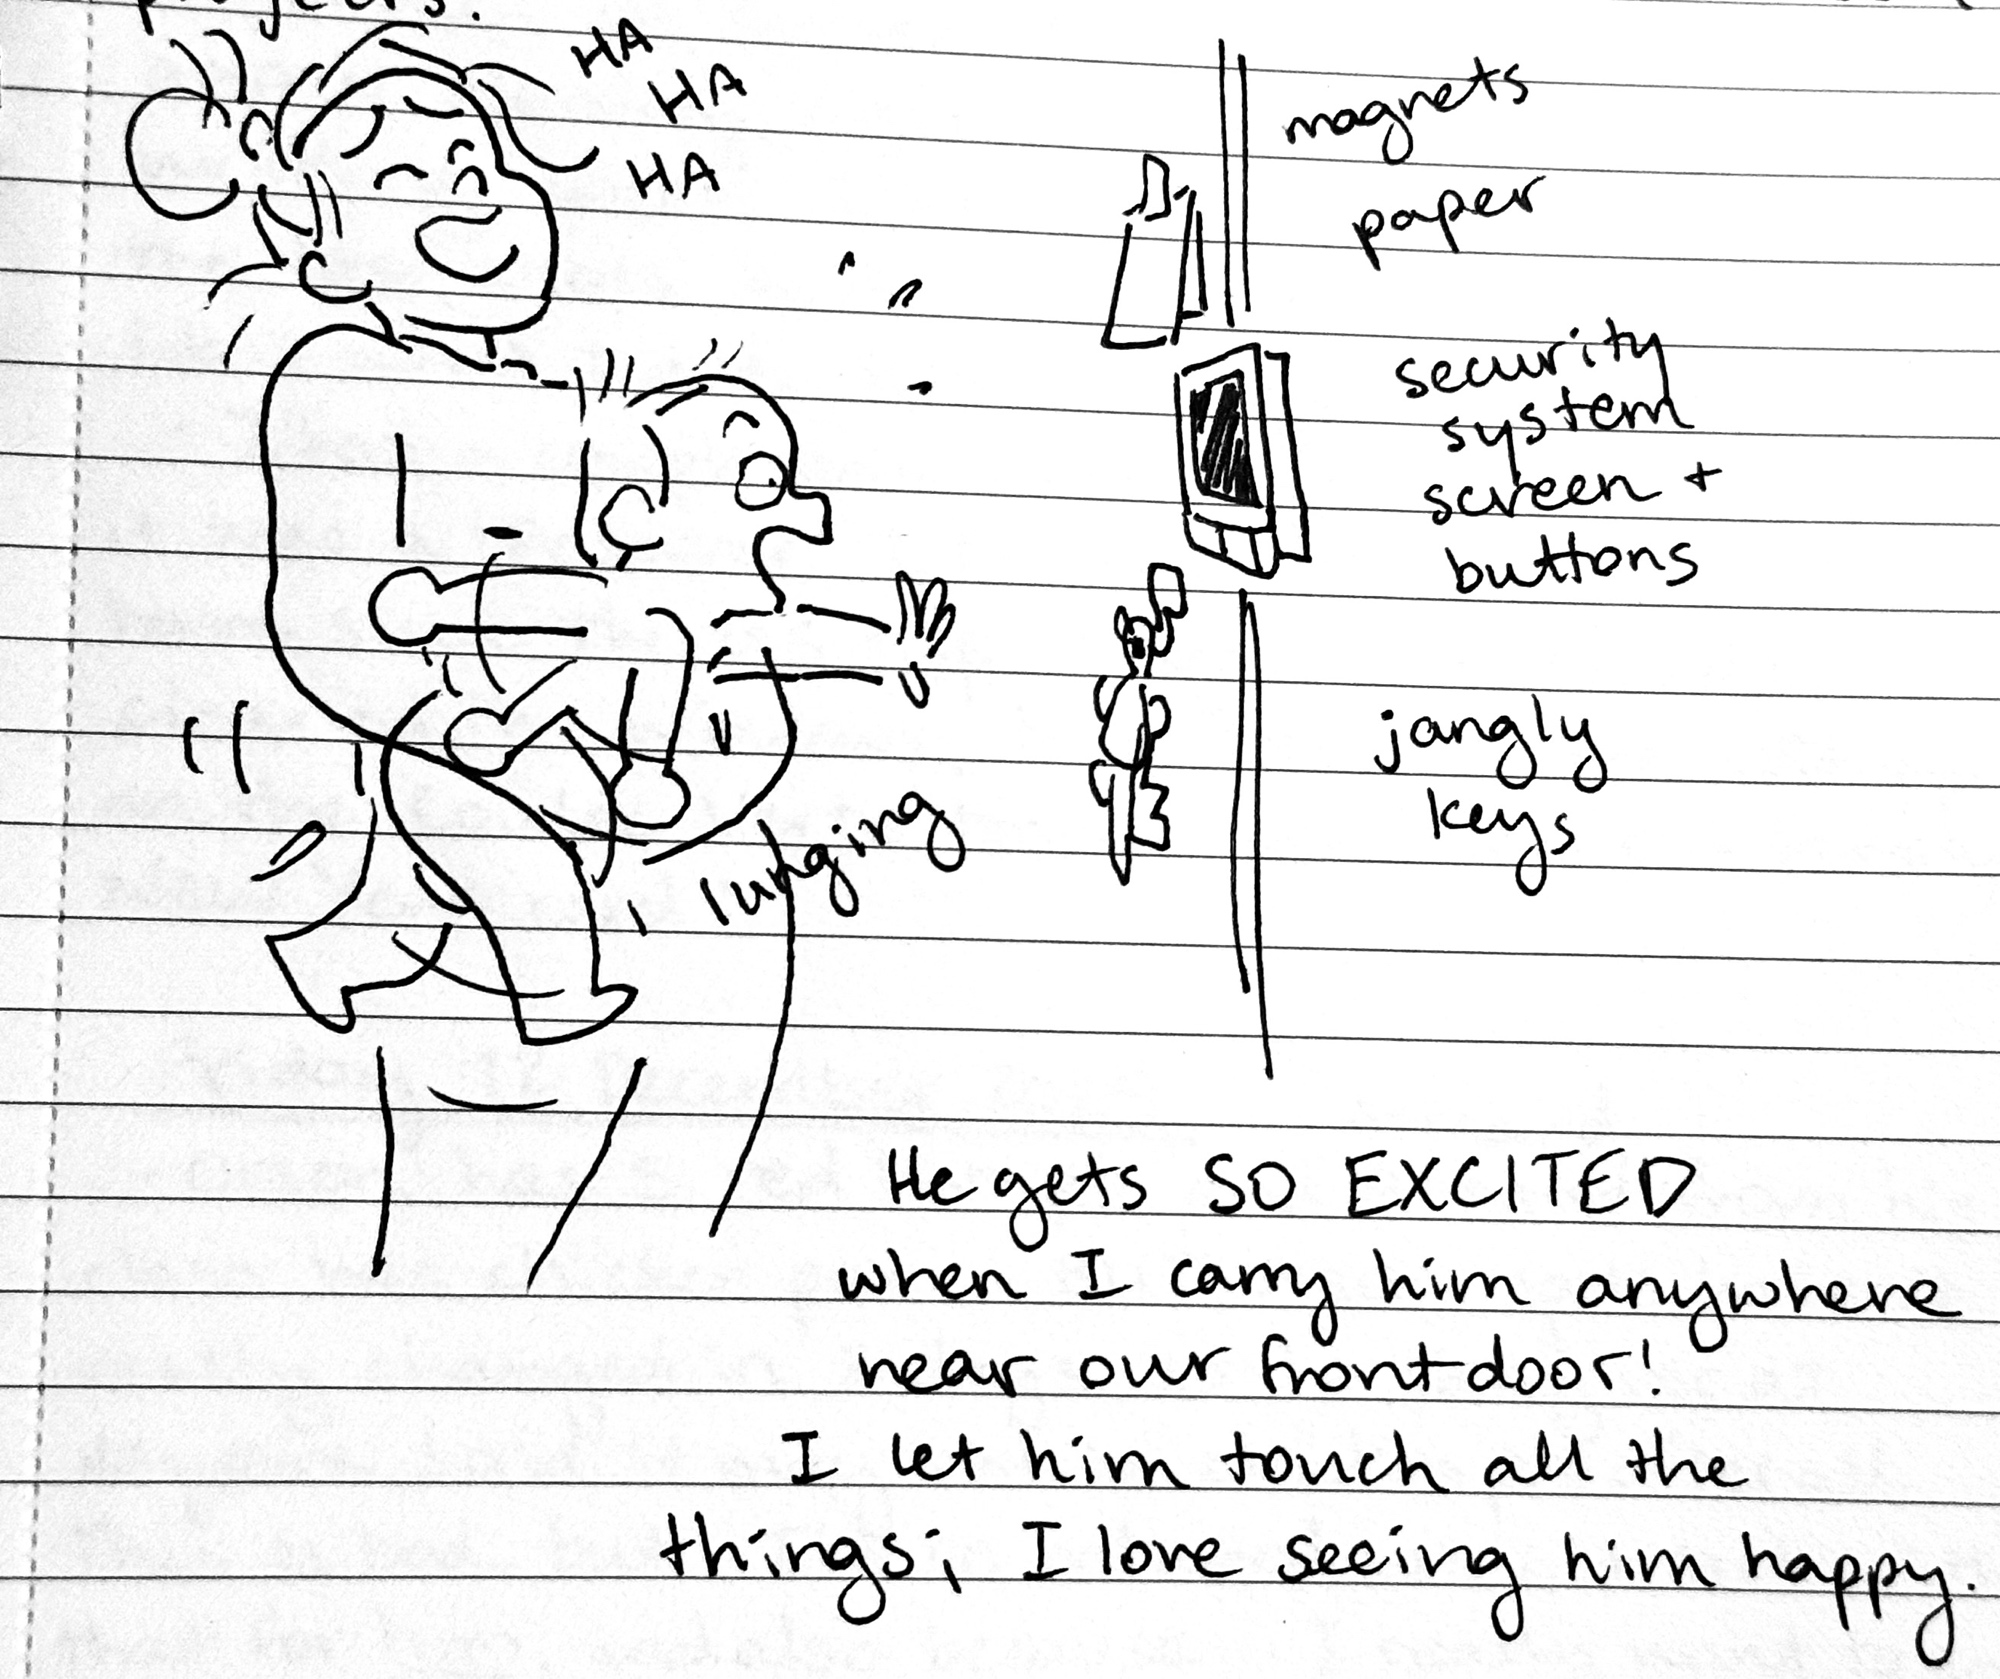 HA
HA
HA
magnets
paper
security
system
screen +
buttons
jangly
keys
lunging
He gets SO EXCITED
when I carry him anywhere
near our front door!
I let him touch all the
things; I love seeing him happy.